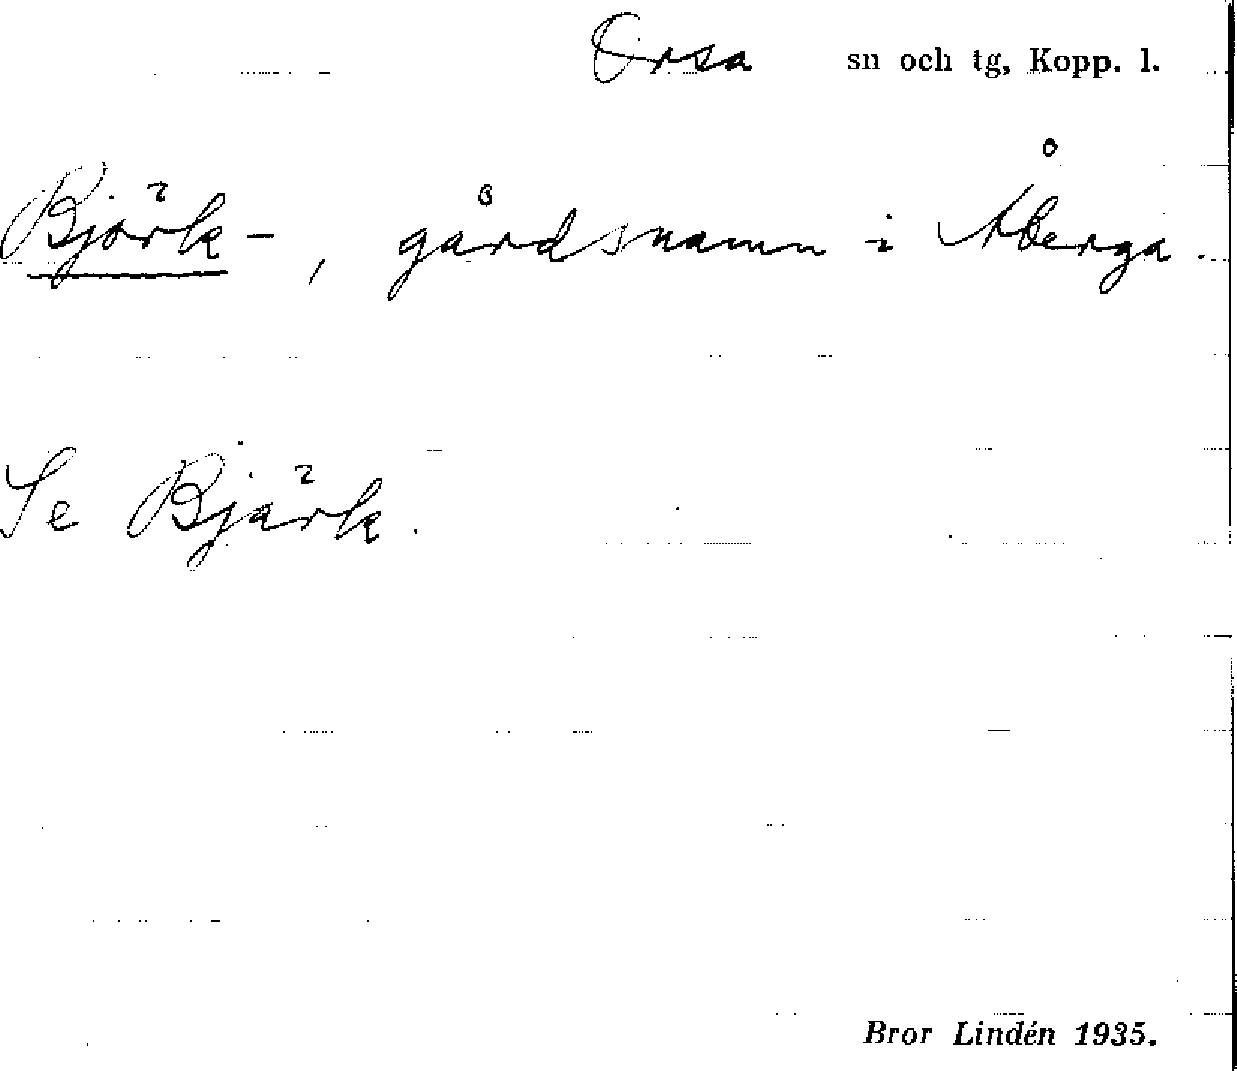 Orsa sn och tg, Kopp. l.
Björk-, gårdsnamn i Åberga.
Se Björk.
Bror Lindén 1935.